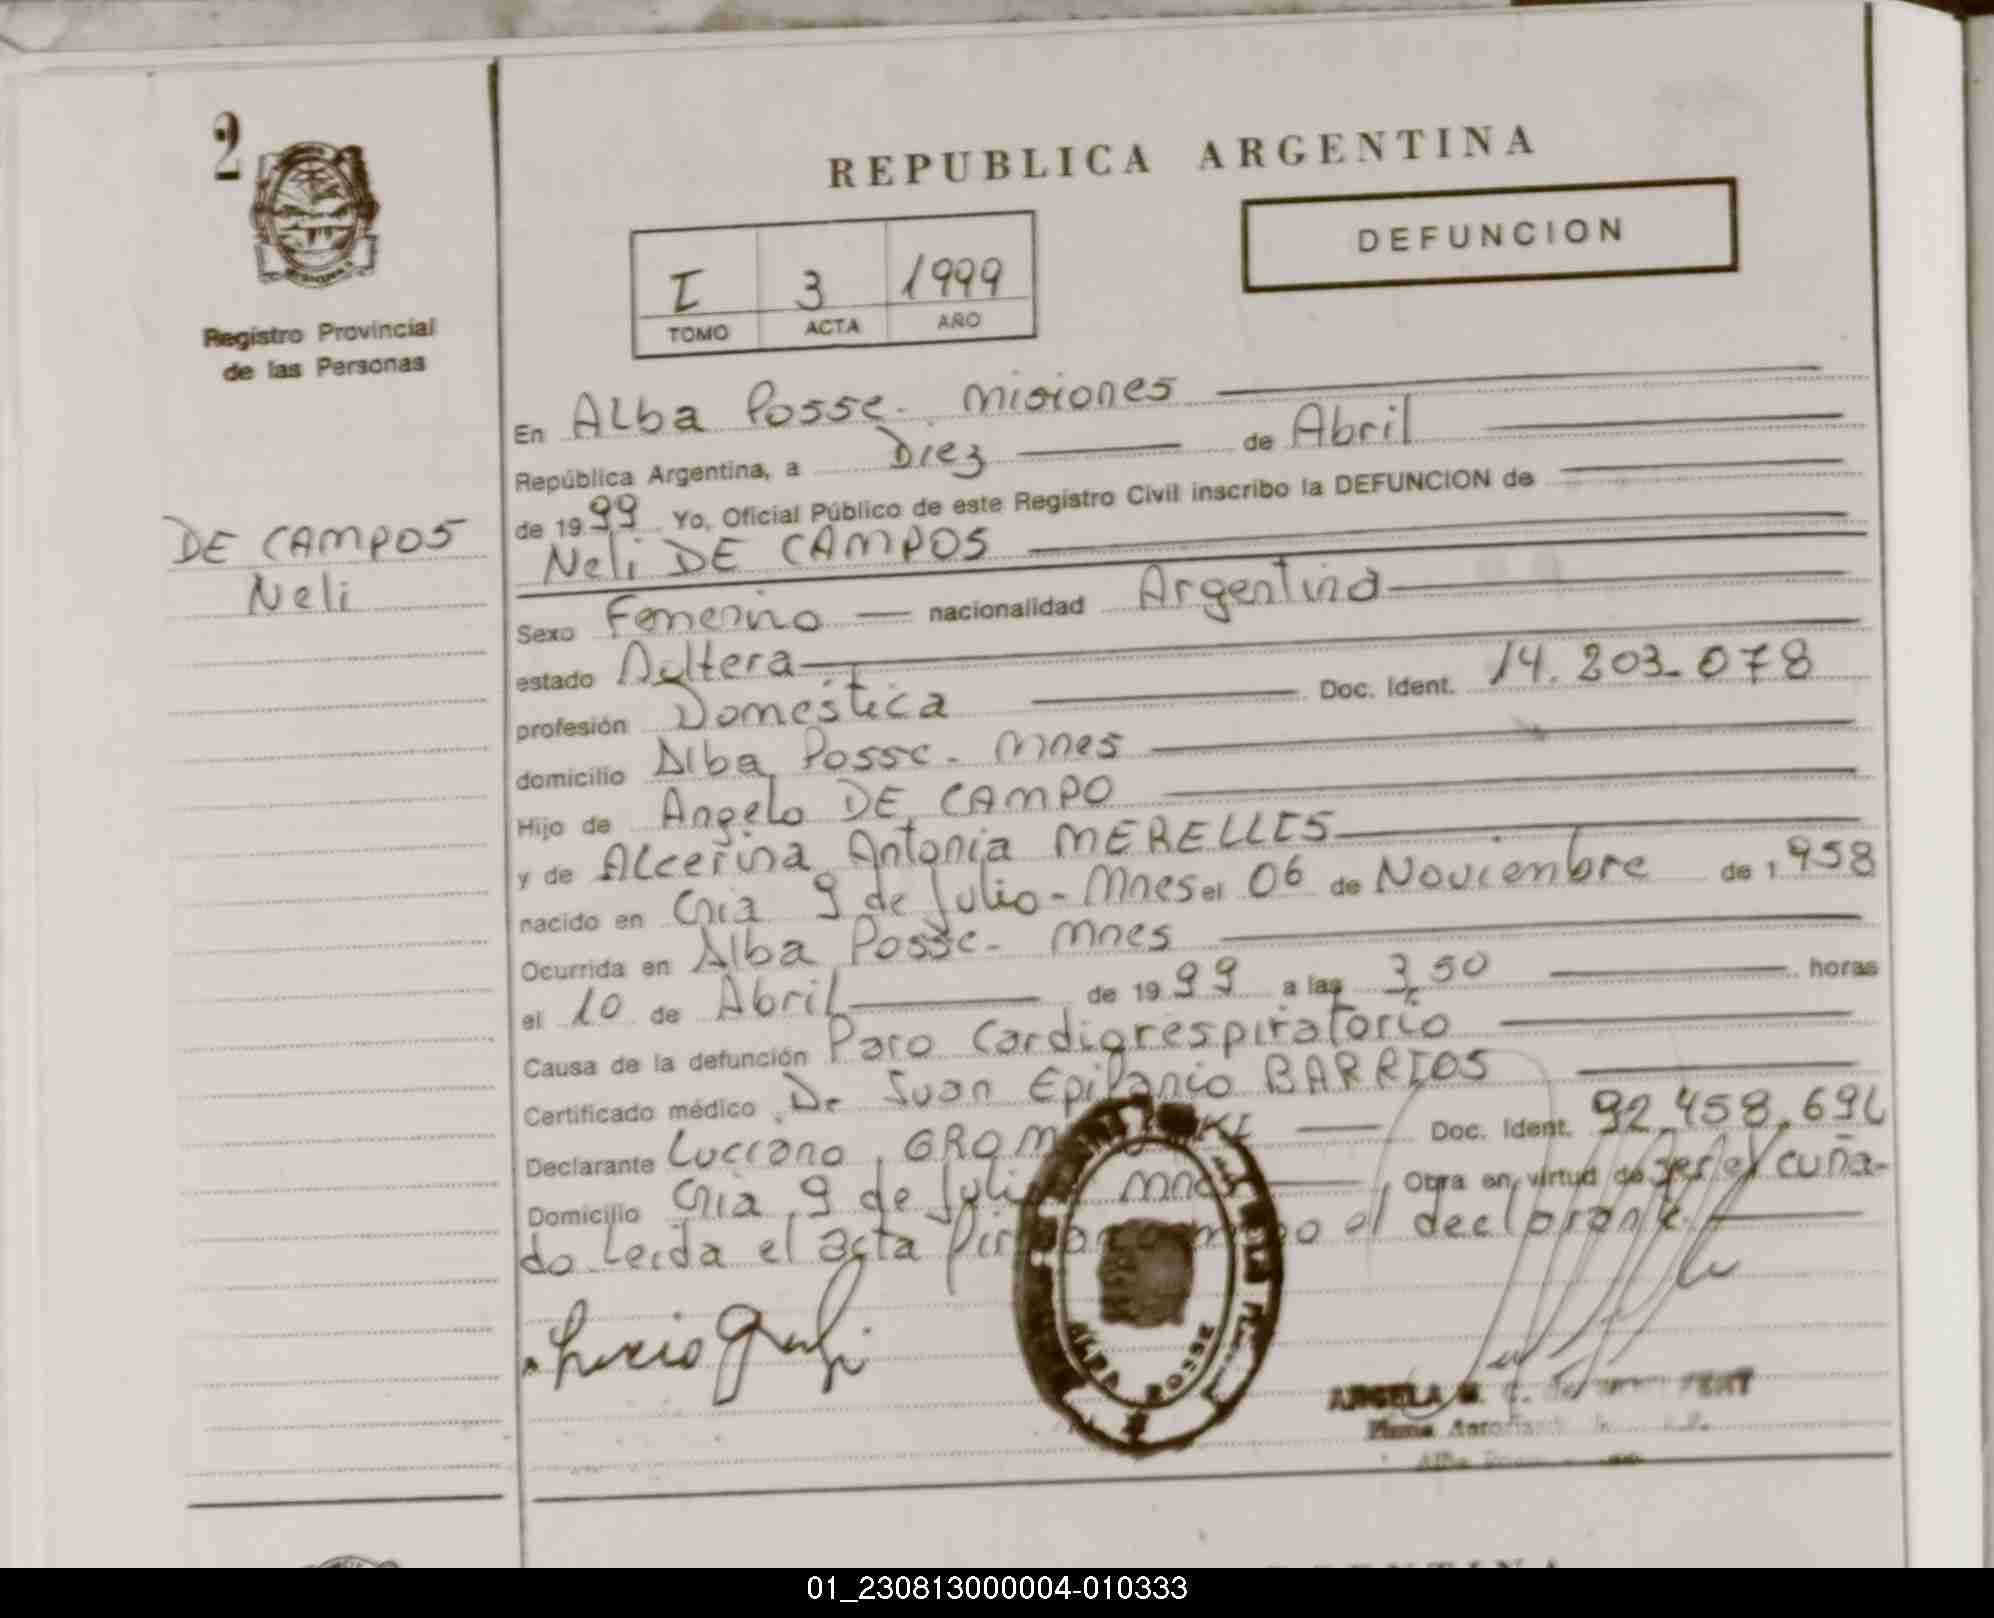 2
REPUBLICA ARGENTINA
DEFUNCION
I 3 1999
TOMO ACTA AÑO
Registro Provincial
de las Personas
DE CAMPOS
Neli
En Alba Posse - Misiones
República Argentina, a Diez de Abril
de 1999 Yo, Oficial Público de este Registro Civil inscribo la DEFUNCION de
Neli DE CAMPOS
Sexo Femenino nacionalidad Argentina
estado Soltera
profesión Doméstica Doc. Ident. 14.203.078
domicilio Alba Posse - Mnes
Hijo de Angelo DE CAMPO
y de Alcerina Antonia MERELLES
nacido en Cnia 9 de Julio - Mnes el 06 de Noviembre de 1958
Ocurrida en Alba Posse - Mnes
el 10 de Abril de 1999 a las 3,50 horas
Causa de la defunción Paro Cardiorespiratorio
Certificado médico Dr Juan Epifanio BARRIOS
Declarante Luciano Doc. Ident.
Domicilio Cnia 9 de Julio Mnes Obra en virtud de ser el cuña-
do Leida el acta el declarante
ALBA POSSE
ANGELA
01_230813000004-010333